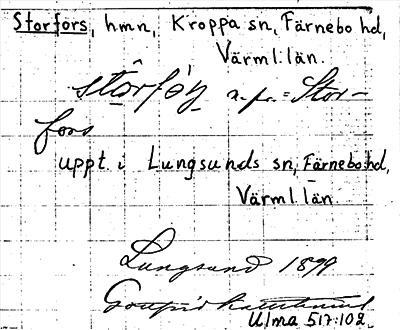 Storfors, hmn, Kroppa sn, Färnebo hd,
Värml. län.
n. pr. = Stor-
fors
uppt. i Lungsunds sn, Färnebo hd,
Värml. län.
Lungsund 1899
Ulma 517:102